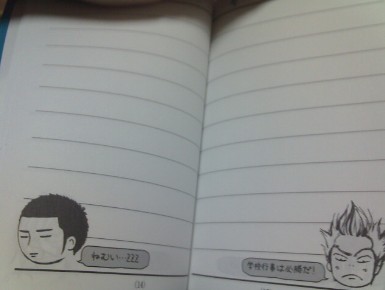 ねむい…ZZZ
学校行事は必勝だ!